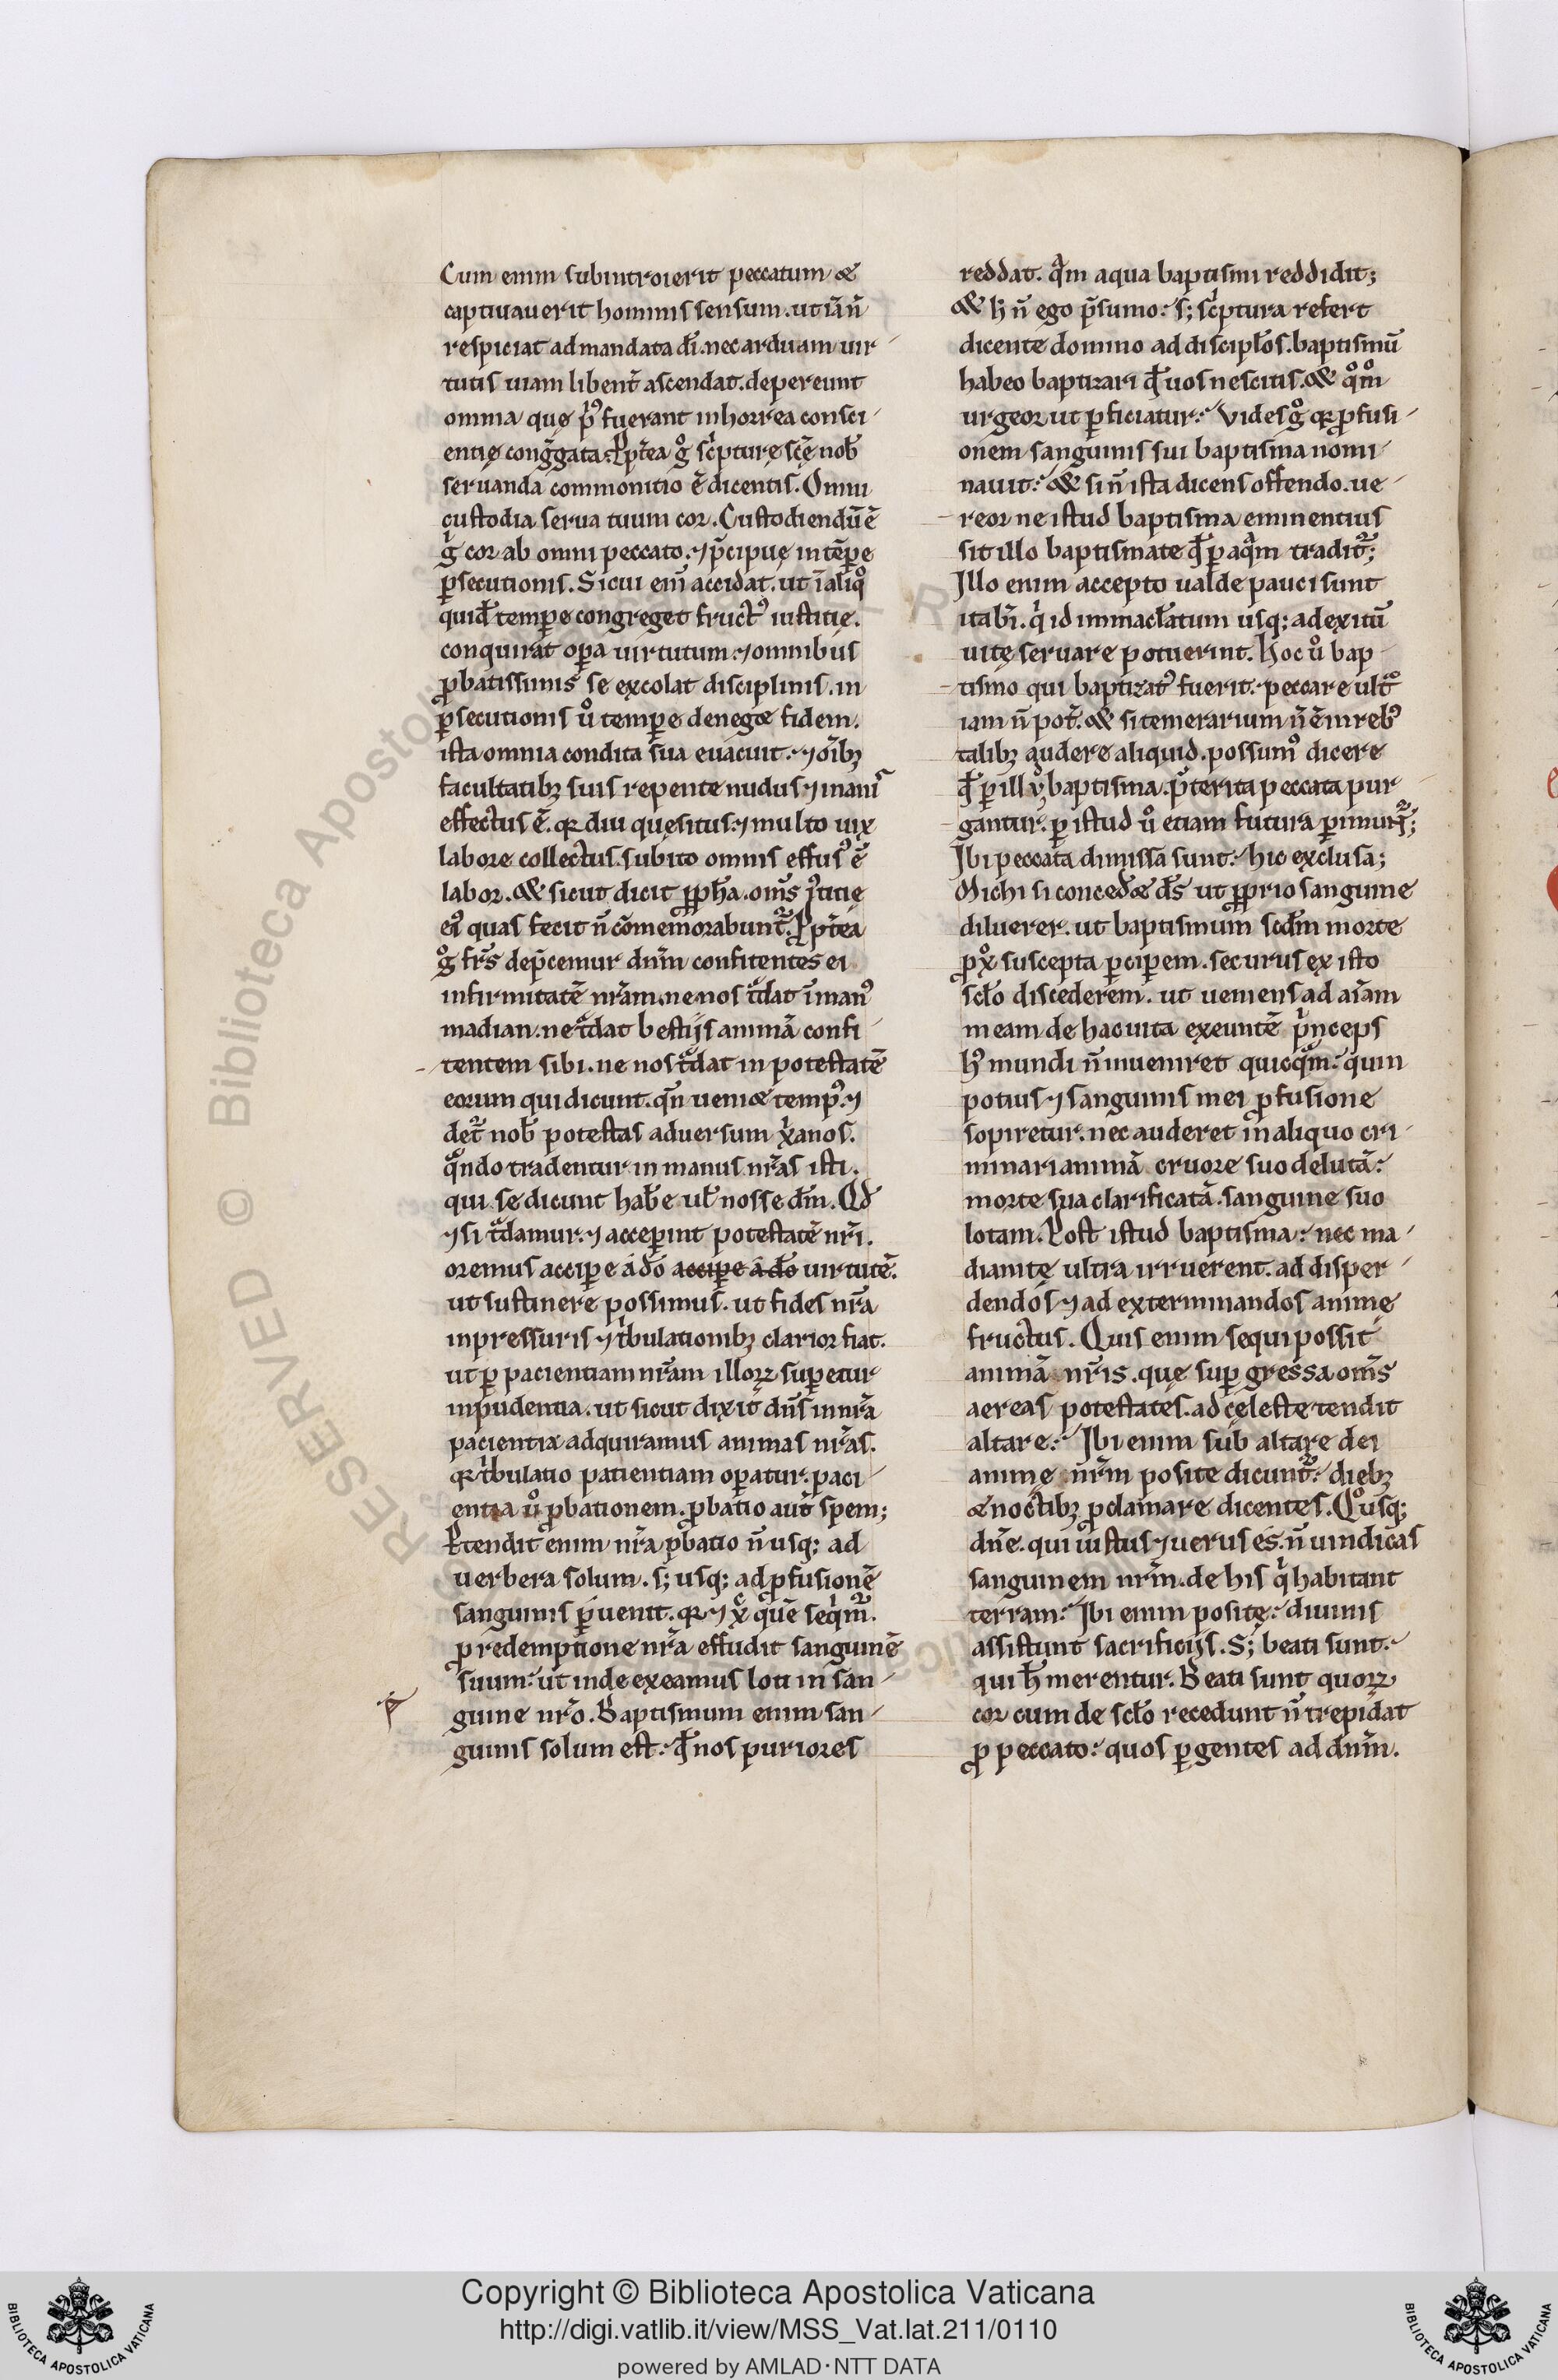 Cum enim subintroierit peccatum &
captiuauerit hominis sensum. ut iā n̄
respiciat ad mandata dī. nec arduam uir-
tutis uiam libent̄ ascendat. depereunt
omnia quę p̄us fuerant in horrea consci-
entię congͣgata. Ppt̄ea gͦ scͥpturę scē nob̄
seruanda commonitio ē dicentis. Omni
custodia serua tuum cor. Custodiendū ē
gͥ cor ab omni peccato. ⁊ p̄cipuę in tēpꝑe
ꝑsecutionis. Si cui em̄ accidat. ut ī aliqͦ
quid̄ tempꝑe congreget fructꝰ iustitię.
conquirat oꝑa uirtutum. ⁊ omnibus
ꝓbatissimis se excolat disciplinis. in
ꝑsecutionis uͦ tempꝑe deneg& fidem.
ista omnia condita sua euacuit. ⁊ oībꝫ
facultatibꝫ suis repente nudus ⁊ inanis
effectus ē. qr diu quęsitus. ⁊ multo uix
labore collectus. subito omnis effusꝰ ē
labor. & sicut dicit ꝓph̄a. om̄s iͥtitię
eiꝰ quas fecit n̄ cōmemorabunt̄. Ppt̄ea
gͦ fr̄s dep̄cemur dn̄m confitentes ei
infirmitatē nr̄am. ne nos tͣdat ī manꝰ
madian. ne tͣdat bestijs animā confi-
tentem sibi. ne nos tͣdat in potestatē
eorum qui dicunt. qn̄ ueni& tempꝰ. ⁊
det̄ nob̄ potestas aduersum xͥanos.
qͣndo tradentur in manus nr̄as isti.
qui se dicunt hab̄e ul̄ nosse dm̄. Qd̄
⁊ si tͣdamur. ⁊ acceꝑint potestatē nr̄i.
oremus acciꝑe a do acciꝑe a do uirtutē.
ut sustinere possimus. ut fides nr̄a
inpressuris ⁊ tͥbulationibꝫ clarior fiat.
ut ꝑ pacientiam nr̄am illorꝝ suꝑetur
inpudentia. ut sicut dixit dn̄s in nr̄a
pacientia adquiramus animas nr̄as.
qr tͥbulatio patientiam oꝑatur. paci-
entia uͦ ꝓbationem. ꝓbatio aut̄ spem;
Ptendit enim nr̄a ꝓbatio n̄ usq; ad
uerbera solum. s; usq; ad ꝓfusionē
sanguinis ꝑuenit. qr ⁊ xͨ quē seqͥm̄.
ꝓ redemptione nr̄a effudit sanguinē
suum. ut inde exeamus loti in san-
guine nr̄o. Baptismum enim san-
guinis solum est. qd̄ nos puriores
reddat. qͣm aqua baptismi reddidit;
& h̄ n̄ ego p̄sumo. s; scͥptura refert
dicente domino ad discipl̄os. baptismū
habeo baptizari qd̄ uos nescitis. & qͦmͦ
urgeor ut ꝑficiatur. Vides gͦ qr ꝓfusi-
onem sanguinis sui baptisma nomi-
nauit. & si n̄ ista dicens offendo. ue-
reor ne istud baptisma eminentius
sit illo baptismate qd̄ ꝑ aqͣm tradit̄;
Illo enim accepto ualde pauci sunt
ita br̄i. qͥ id immacl̄atum usq; ad exitū
uitę seruare potuerint. Hoc uͦ bap-
tismo qui baptizatꝰ fuerit. peccare ultͣ
iam n̄ pot̄. & si temerarium n̄ ē in rebꝰ
talibꝫ audere aliquid. possumꝰ dicere
qd̄ ꝑ illụͩ baptisma. p̄terita peccata pur-
gantur. ꝑ istud uͦ etiam futura ꝑimunt̄;
Ibi peccata dimissa sunt. hic exclusa;
Michi si conced& ds̄ ut ꝓprio sanguine
diluerer. ut baptismum scd̄m morte
ꝓ xͦ suscepta ꝑciperem. securus ex isto
scl̄o discederem. ut ueniens ad aīam
meam de hac uita exeuntē pͥnceps
hꝰ mundi n̄ inueniret quicqͣm. quin
potius ⁊ sanguinis mei ꝓfusione
sopiretur. nec auderet in aliquo cri-
minari animā cruore suo delutā.
morte sua clarificatā. sanguine suo
lotam. Post istud baptisma. nec ma-
dianitę ultra irruerent. ad disper-
dendos ⁊ ad exterminandos animę
fructus. Quis enim sequi possit
animā nr̄is. quę suꝑgressa om̄s
aereas potestates. ad cęleste tendit
altare. Ibi enim sub altare dei
animę nr̄m posite dicunt̄. diebꝫ
& noctibꝫ ꝓclamare dicentes. Qͦusq;
dn̄e. qui iustus ⁊ uerus es. n̄ uindicas
sanguinem nr̄m. de his qͥ habitant
terram. Ibi enim positę. diuinis
assistunt sacrificijs. S; beati sunt.
qui h̄ merentur. Beati sunt quorꝝ
cor cum de scl̄o recedunt n̄ trepidat
ꝓ peccato. quos ꝑgentes ad dn̄m.
RESERVED © Biblioteca Apostolica
Copyright © Biblioteca Apostolica Vaticana
http://digi.vatlib.it/view/MSS_Vat.lat.211/0110
powered by AMLAD·NTT DATA
BIBLIOTECA APOSTOLICA VATICANA
BIBLIOTECA APOSTOLICA VATICANA